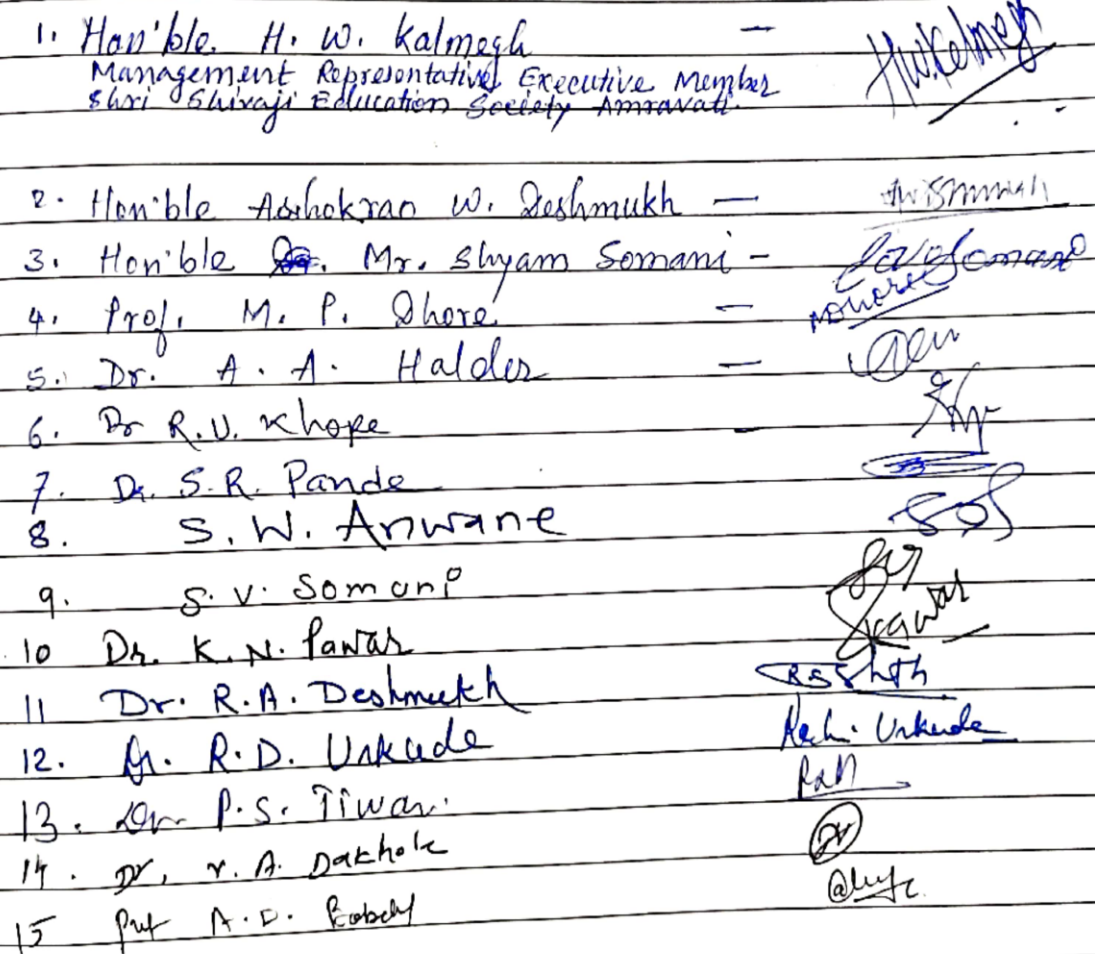 1. Hon'ble. H. W. Kalmegh — H.W.Kalmegh
Management Representative, Executive Member
Shri Shivaji Education Society Amravati.
2. Hon'ble Ashokrao W. Deshmukh —
3. Hon'ble Mr. Shyam Somani -
4. Prof. M. P. Dhore —
5. Dr. A. A. Halder —
6. Dr R.U. Khope -
7. Dr. S.R. Pande
8. S. W. Anwane
9. S. V. Somani
10 Dr. K. N. Pawar
11 Dr. R.A. Deshmukh
12. Dr. R.D. Urkude Urkude
13. Dr P.S. Tiwari
14. Dr. V. A. Dakhole
15 Prof A.D.